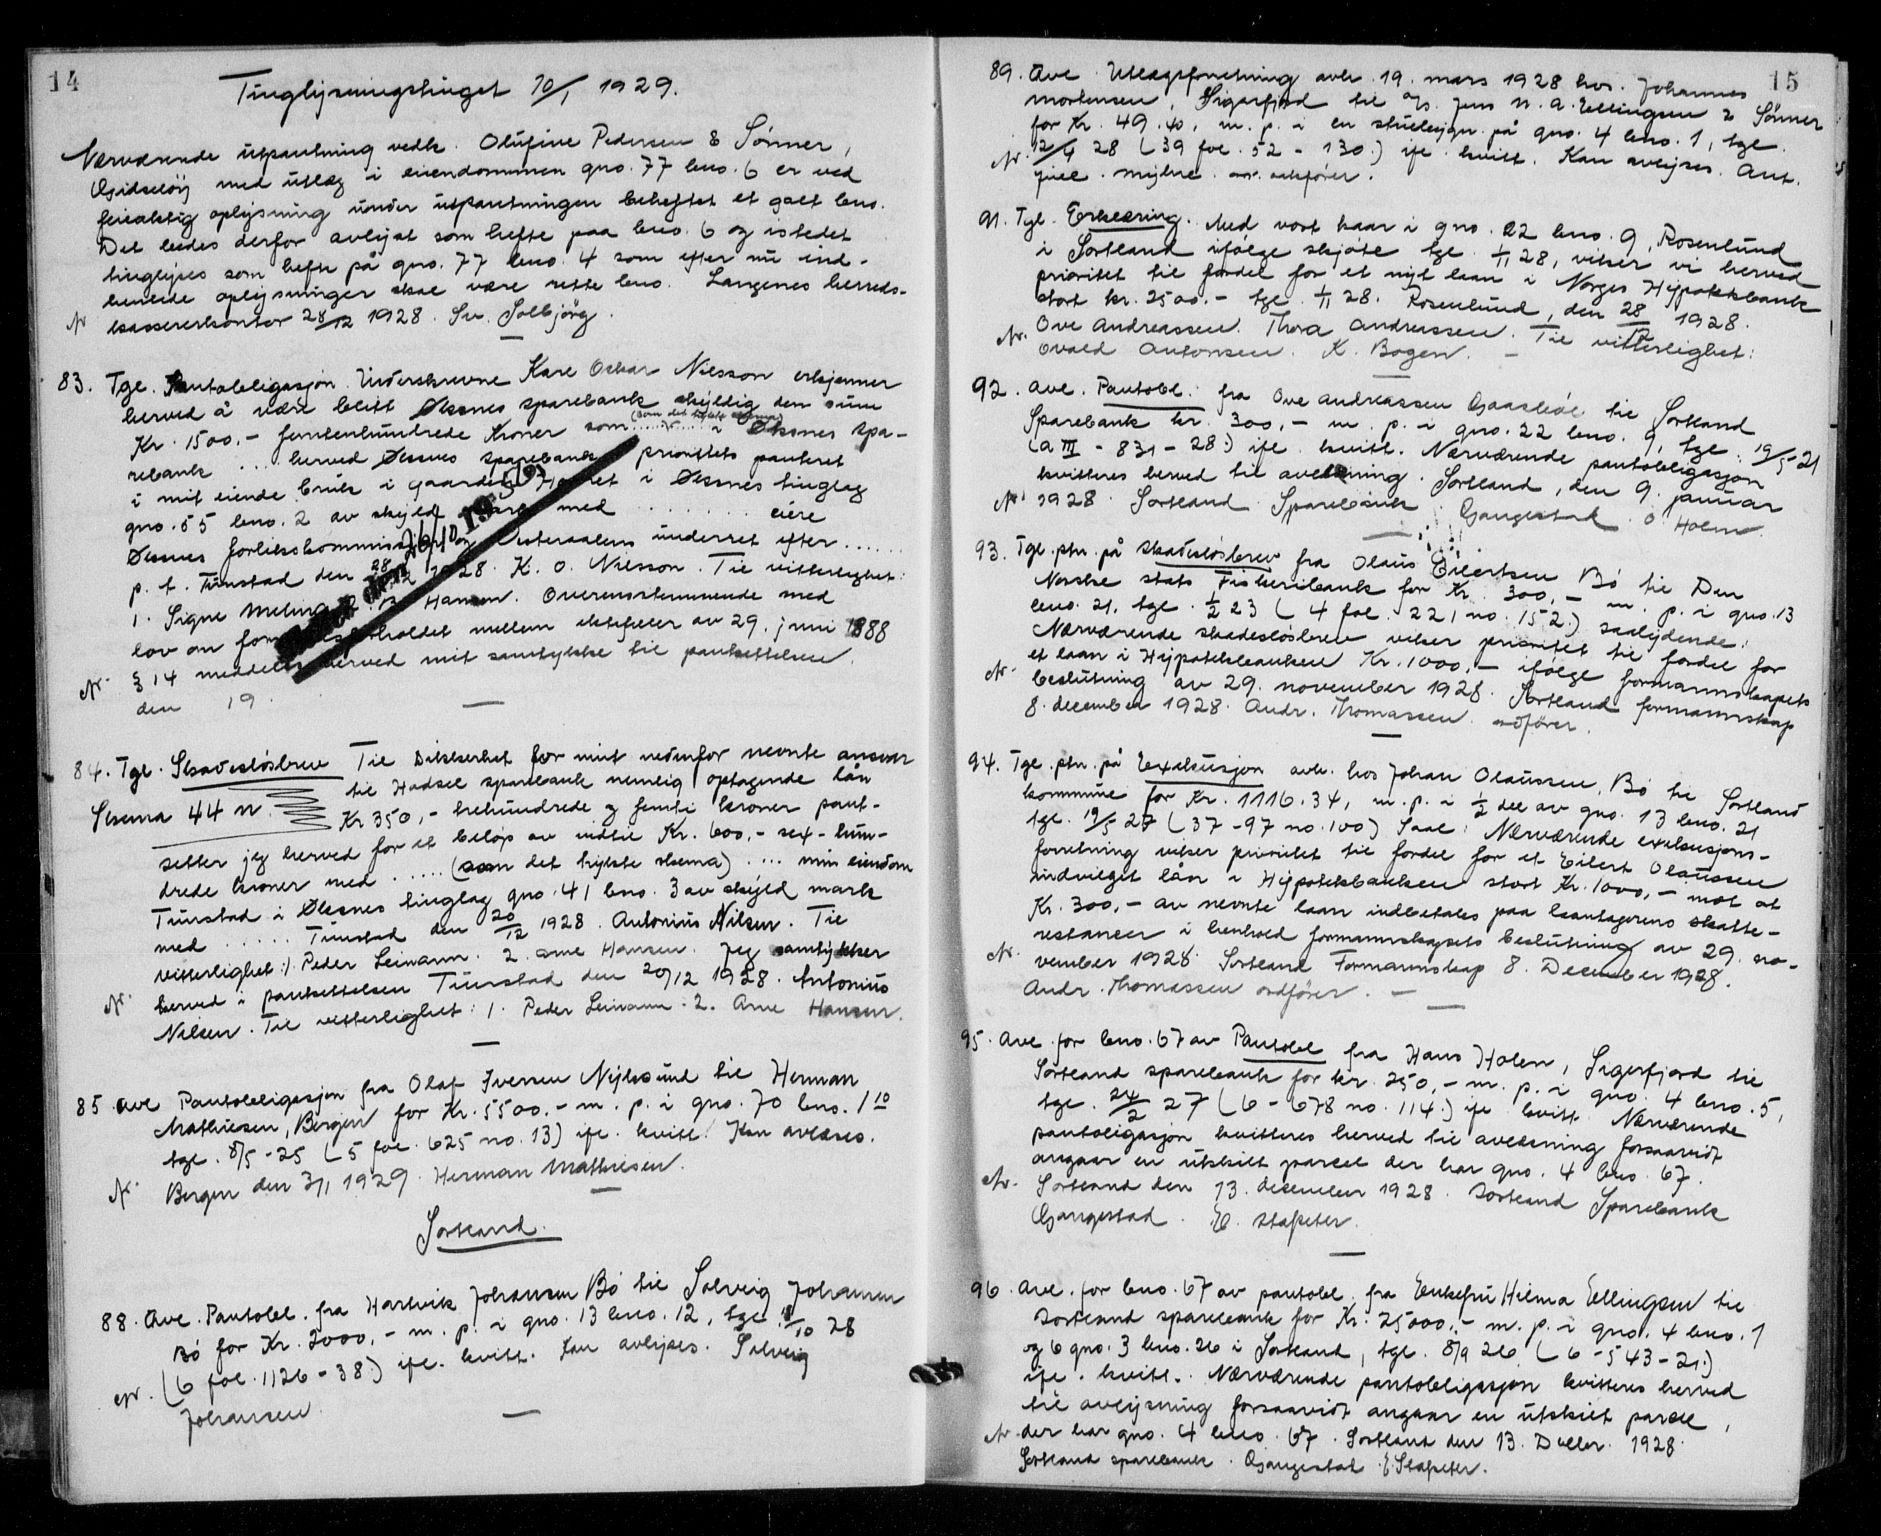 14
Tinglysningstinget 10/1 1929.
Nærværende utpantning vedk. Olufine Pedersen & Sønner,
Gidsløy med utlæg i eiendommen gno. 77 bno. 6 er ved
feilaktig oplysning under utpantningen beheftet et galt bno.
Det bedes derfor avlyst som hefte paa bno. 6 og istedet
tinglyses som hefte på gno. 77 bno. 4 som efter nu ind-
hentede oplysninger skal være rette bno. Langenes herreds-
N kassererkontor 28/12 1928. Sv. Solbjörg.
83. Tgl. Pantobligasjon. Underskrevne Kare Oskar Nilsson erkjenner
herved å være blitt Øksnes sparebank skyldig den sum
(som det trykte skema)
Kr. 1500,- femtenhundrede Kroner som ........ i Øksnes spa-
rebank ... herved Øksnes sparebank prioritets panteret
i mit eiende bruk i gaarden i Øksnes tinglag
gno. 55 bno. 2 av skyld mark med ........ eiere
Øksnes forlikskommissjon og Vesteraalens underret efter ......
p. t. Tunstad den 28/12 1928. K. O. Nilsson. Til vitterlighet:
1. Signe 2. Hansen. Overensstemmende med
lov om formuesforholdet mellem ektefeller av 29. juni 1888
N. § 14 meddeles herved mit samtykke til pantsettelsen.
den 19 .
den 26/10 19
84. Tgl. Skadesløsbrev Til sikkerhet for mit nedenfor nevnte ansvar
til Hadsel sparebank nemlig optagende lån
Skema 44 n. Kr 350,- trehundrede og femti kroner pant-
setter jeg herved for et beløp av indtil Kr. 600,- sex-hun-
drede kroner med ..... (som det trykte skema) .... min eiendom
Tunstad i Øksnes tinglag gno. 41 bno. 3 av skyld mark
med ..... Tunstad den 20/12 1928. Antonius Nilsen. Til
vitterlighet: 1. Peder Leimann. 2. Arne Hansen. Jeg samtykker
N. herved i pantsettelsen Tunstad den 20/12 1928. Antonius
Nilsen. Til vitterlighet: 1. Peder Leimann - 2. Arne Hansen.
85. Avl Pantobligasjon fra Olaf Iversen Nyksund til Herman
Mathiesen, Bergen for Kr. 5500,- m. p. i gno. 70 bno. 1 10
tgl. 8/5 - 25 (5 fol. 625 no. 13) ifl. kvitt. Kan avlæses.
N. Bergen den 3/1 1929. Herman Mathiesen.
Sortland.
88. Avl. Pantobl. fra Hartvik Johansen Bø til Solveig Johansen
Bø for Kr. 2000,- m. p. i gno. 13 bno. 12, tgl. /10 28
N. (6 fol. 1126 - 38) ifl. kvitt. Kan avlyses. Solveig
Johansen
15
89. Avl. Utlægsforretning avh. 19. mars 1928 hos. Johannes
Mortensen, Sigerfjord til A/s. Jens N. A. Ellingsen & Sønner
for Kr. 49.40, m. p. i en stuebygn. på gno. 4 bno. 1, tgl.
N. 12/4 28 (39 fol. 52 - 130) ifl. kvitt. Kan avlyses. Ant.
91. Tgl. Erklæring. Med vort kaar i gno. 22 bno. 9, Rosenlund
i Sortland ifølge skjøte tgl. 1/11 28, viker vi herved
prioritet til fordel for et nyt laan i Norges Hypotekbank
stort kr. 2500.- tgl. 1/11 28. Rosenlund, den 28/12 1928.
N. Ove Andreassen. Thora Andreassen. Til vitterlighet:
Ovald Antonsen. K. Bogen.
92. Avl. Pantobl. fra Ove Andreassen Gaasbøl til Sortland
Sparebank kr. 300,- m. p. i gno. 22 bno. 9, tgl. 19/5-21
(a III - 831 - 28) ifl. kvitt. Nærværende pantobligasjon
kvitteres herved til avlæsning. Sortland, den 9. januar
N. 1928. Sortland Sparebank Gangestad. O Holm.
93. Tgl. ptn. på skadesløsbrev fra Olaus Eilertsen Bø til Den
Norske stats Fiskeribank for Kr. 300,- m. p. i gno. 13
bno. 21, tgl. 1/2 23 (4 fol. 221 no. 152.) saalydende:
Nærværende skadesløsbrev viker prioritet til fordel for
N. et laan i Hypotekbanken Kr. 1000,- ifølge formannskapets
beslutning av 29. november 1928. Sortland formannskap
8. december 1928. Andr. Thomassen. ordfører.
94. Tgl. ptn. på Exekusjon avh. hos Johan Olaussen, Bø til Sortland
kommune for Kr. 1116.34, m. p. i 1/2 del av gno. 13 bno. 21
tgl. 19/5 27 (37 - 97 no. 100) Saal: Nærværende exekusjons-
forretning viker prioritet til fordel for et Eilert Olaussen
indvilget lån i Hypotekbanken stort Kr. 1000,- mot at
Kr. 300,- av nevnte laan indbetales paa laantagerens skatte-
restancer i henhold formannskapets beslutning av 29. no-
N. vember 1928. Sortland Formannskap 8. December 1928.
Andr. Thomassen ordfører.
95. Avl. for bno. 67 av Pantobl fra Hans Holen, Sigerfjord til
Sortland sparebank for kr. 250,- m. p. i gno. 4 bno. 5,
tgl. 24/2 27 (6 - 678 no. 114.) ifl kvitt. Nærværende
pantoligasjon kvitteres herved til avlæsning forsaavidt
angaar en utskilt parcel der har gno. 4 bno. 67.
N. Sortland den 13. desember 1928. Sortland Sparebank
Gangestad. E. Stapeter.
96. Avl. for bno. 67 av pantobl. fra Enkefru Hilma Ellingsen til
Sortland sparebank for Kr. 25000,- m. p. i gno. 4 bno. 1
og 6 gno. 3 bno. 26 i Sortland, tgl. 8/9 26 (6 - 543 - 21.)
ifl. kvitt. Nærværende pantobligasjon kvitteres herved
til avlysning forsaavidt angaar en utskilt parcel,
N. der har gno. 4 bno. 67. Sortland den 13. Decbr. 1928.
Sortland sparebank. Gangestad E. Stapeter.